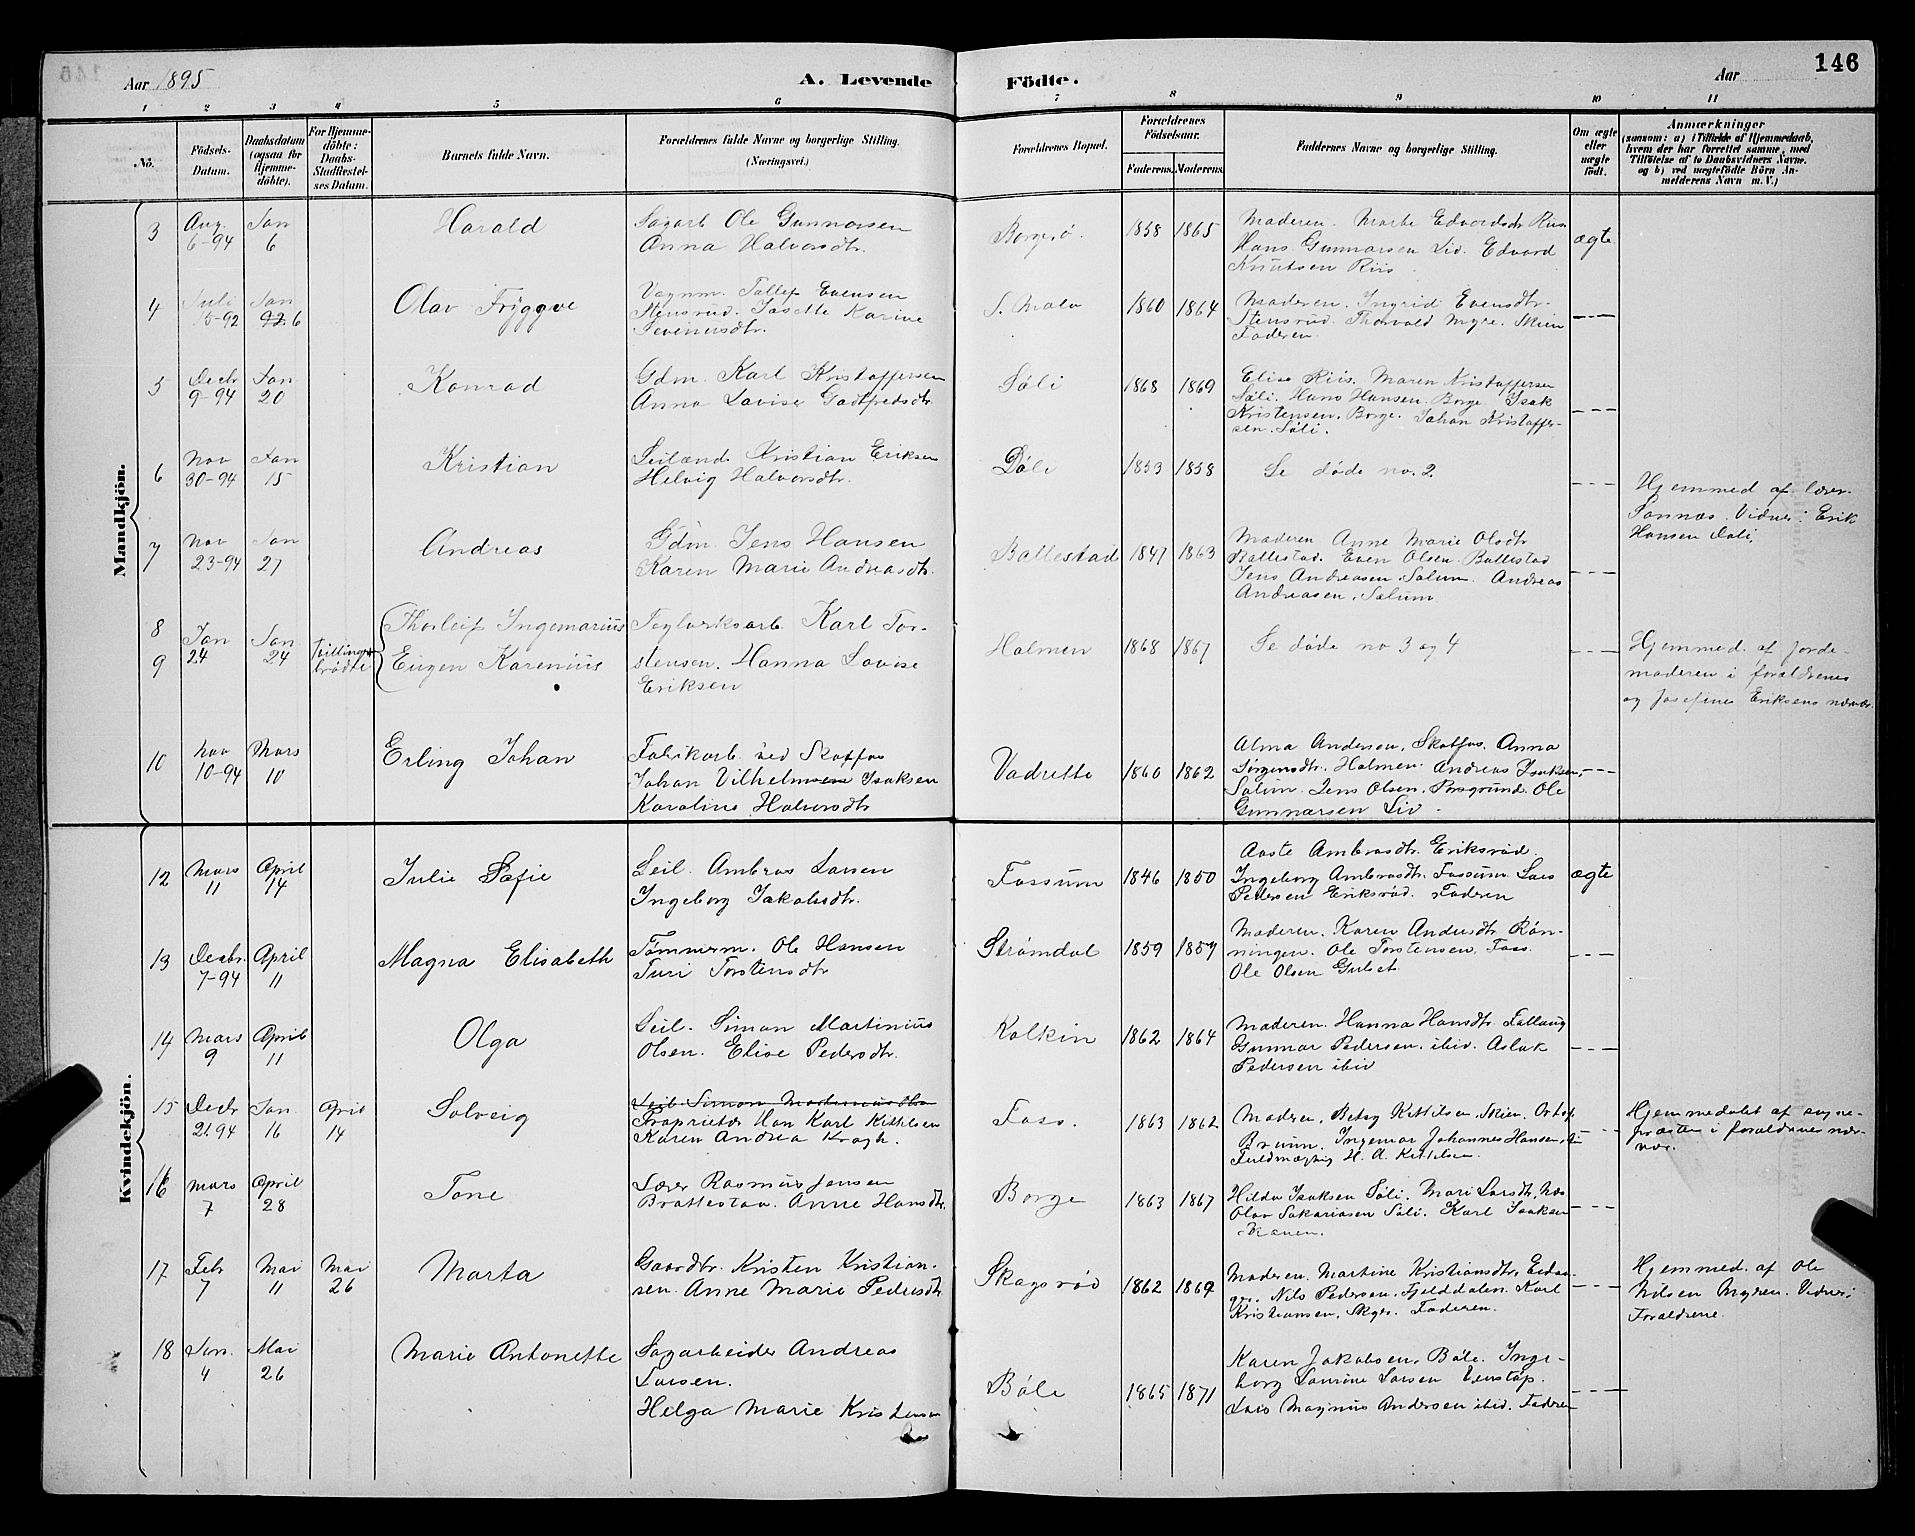 Aar 1895
A. Levende
Födte.
Aar
146
1 2 3 4 5 6 7 8 9 10 11
No.
Födsels-
Datum.
Daabsdatum
(ogsaa for
Hjemme-
döbte).
For Hjemme-
döbte:
Daabs-
Stadfæstel-
ses Datum.
Barnets fulde Navn.
Forældrenes fulde Navne og borgerlige Stilling.
(Næringsvei.)
Forældrenes Bopæl.
Forældrenes
Födselsaar.
Faderens.
Moderens.
Faddernes Navne og borgerlige Stilling.
Om ægte
eller
uægte
födt.
Anmærkninger
(saasom: a) i Tilfælde af Hjemmedaab,
hvem der har forrettet samme, med
Tilföielse af to Daabsvidners Navne,
og b) ved uægtefödte Börn An-
melderens Navn m. V.)
Mandkjön.
3
Aug.
6-94
Jan
6
Harald
Sagarb Ole Gunnarsen
Anna Halvorsdtr.
Borgesø.
1858 1865
Moderen. Marte Edvardsdtr Riis
Hans Gunnarsen Lid. Edvard
Knutsen Riis.
ægte
4
Juli
15-92
Jan
92. 6
Olav Tryggve
Vognm. Tollef Evensen
Stensrud. Josette Karine
Sevenusdtr.
S. Malv
1860 1864
Moderen. Ingrid Evensdtr.
Stensrud. Thorvald Myre. Skien
Faderen.
5
Decbr
9-94
Jan
20
Konrad
Gdm. Karl Kristoffersen
Anna Lovise Godtfredsdtr.
Søli
1868 1869
Elise Riis. Maren Kristoffersen
Søli. Hans Hansen. Borge. Isak
Kristensen. Borge. Johan Kristoffer-
sen. Søli.
6
Nov
30-94
Jan
15
Kristian
Leilænd. Kristian Eriksen
Helvig Halvorsdtr.
Døli
1853 1858
Se døde no. 2
Hjemmed af lærer
Sannæs. Vidner: Erik
Hansen Døli,
7
Nov
23-94
Jan
27
Andreas
Gdm. Jens Hansen
Karen Marie Andreasdtr.
Ballestad
1847 1863
Moderen Anne Marie Olsdtr
Ballestad. Even Olsen. Ballestad
Jens Andreasen. Solum. Andreas
Andreasen, Solum
8
9
Jan
24
Jan
24
tvillinge
brødre
Thorleif Ingemarius
Eugen Karenius
Teglverksarb. Karl Tor-
stensen. Hanna Lovise
Eriksen
Holmen
1868 1867
Se døde no 3 og 4
Hjemmed. af jorde-
moderen i forældrenes
og Josefine Eriksens nærvær.
10
Nov
10-94
Mars
10
Erling Johan
Fabrikarb. ved Skotfos
Johan Vilhelmsen Isaksen
Karoline Halvorsdtr
Vadrette
1860 1862
Alma Andersen, Skotfos. Anna
Jørgensdtr. Holmen. Andreas Isaksen,
Solum. Jens Olsen. Porsgrund. Ole
Gunnarsen Lid.
Kvindekjön.
12
Mars
11
April
14
Julie Sofie
Leil. Ambros Larsen
Ingeborg Jakobsdtr.
Fossum
1846 1850
Aaste Ambrosdtr. Eriksrød.
Ingeborg Ambrosdtr. Fossum. Lars
Pedersen Eriksrød. Faderen
ægte
13
Decbr.
7-94
April
11
Magna Elisabeth
Tømmerm. Ole Hansen
Turi Torstensdtr
Strømdal
1859 1857
Moderen. Karen Andersdtr Røn-
ningen. Ole Torstensen, Foss
Ole Olsen Gulset.
14
Mars
9
April
11
Olga
Leil. Simon Martinius
Olsen. Elise Pedersdtr.
Kolkin
1862 1864
Moderen. Hanna Hansdtr.
Gunnar Pedersen. ibid. Aslak
Pedersen ibid
15
Decbr
21.94
Jan
16
April
14
Solveig
Leil. Simon Martinius Ols
Proprietær Han Karl Kittilsen
Karen Andrea Kragh.
Foss.
1863 1862
Moderen, Betsy Kittilsen, Skien,
Bruun. Ingemar Johannes Hansen,
Fuldmægtig H. A. Kittilsen.
Hjemmedøbt af sogne-
præsten i forældrenes nær-
vær.
16
Mars
7
April
28
Tone
Lærer Rasmus Jensen
Brattestaa. Anne Hansdtr.
Borge
1863 1867
Hilda Isaksen Søli. Mari Larsdtr.
Olav Sakariasen Søli. Karl Isaksen
17
Febr
7
Mai
11
Mai
26
Marta
Gaardbr. Kristen Kristian-
sen. Anne Marie Pedersdtr
Skagsrød
1862 1864
Moderen. Martine Kristiansdtr.
Nils Pedersen, Fjelddalen. Karl
Kristiansen, Skgsr. Faderen.
Hjemmed. af Ole
Nilsen Myren. Vidner:
Forældrene.
18
Jan.
4
Mai
26
Marie Antonette
Sagarbeider Andreas
Larsen.
Helga Marie Kristensen
Bøle
1865 1871
Karen Jakobsen, Bøle. Inge-
borg Laurine Larsen Venstøp.
Lars Magnus Andersen ibid. Faderen